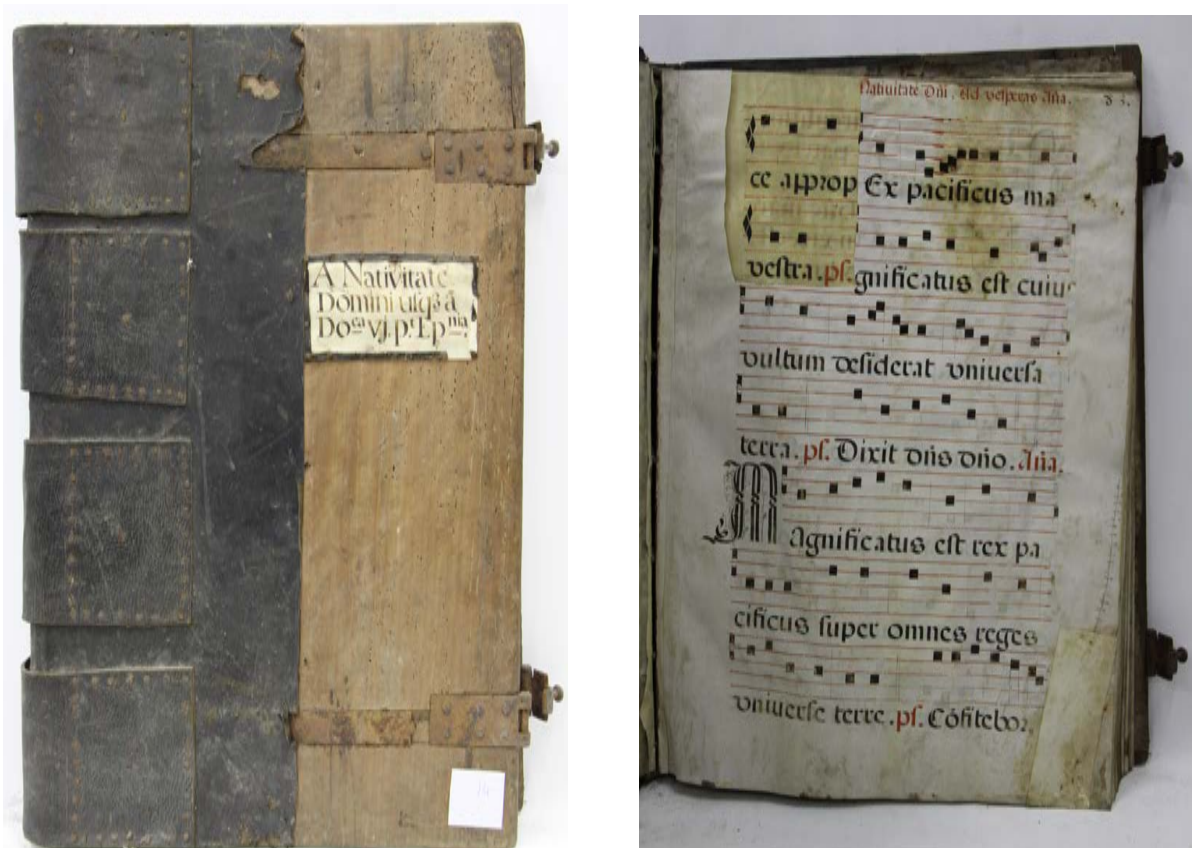 A Nativitate
Domini usq3 ã
Do^ca vj. p^t Ep^nia.
Nativitate Dñi. Ad vesperas Aña.
ce approp Ex pacificus ma
vestra. ps. gnificatus est cuius
vultum desiderat vniuersa
terra. ps. Dixit dñs dño. Aña.
Magnificatus est rex pa
cificus super omnes reges
vniuerse terre. ps. Cõfitebor.